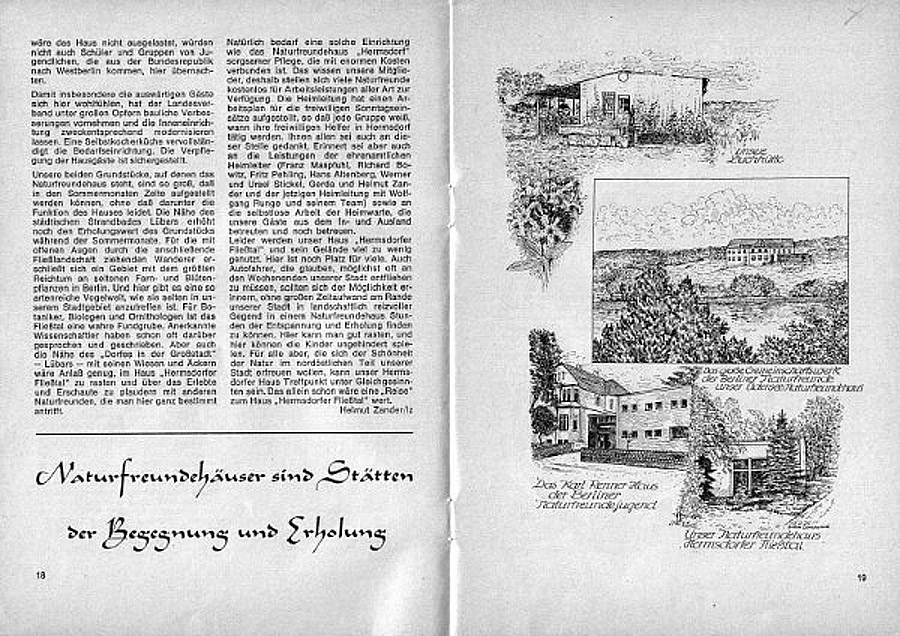 wäre das Haus nicht ausgelastet, würden
nicht auch Schüler und Gruppen von Ju-
gendlichen, die aus der Bundesrepublik
nach Westberlin kommen, hier übernach-
ten.
Damit insbesondere die auswärtigen Gäste
sich hier wohlfühlen, hat der Landesver-
band unter großen Opfern bauliche Verbes-
serungen vornehmen und die Inneneinrich-
tung zweckentsprechend modernisieren
lassen. Eine Selbstkocherküche vervollstän-
digt die Bedarfseinrichtung. Die Verpfle-
gung der Hausgäste ist sichergestellt.
Unsere beiden Grundstücke, auf denen das
Naturfreundehaus steht, sind so groß, daß
in den Sommermonaten Zelte aufgestellt
werden können, ohne daß darunter die
Funktion des Hauses leidet. Die Nähe des
städtischen Strandbades Lübars erhöht
noch den Erholungswert des Grundstücks
während der Sommermonate. Für die mit
offenen Augen durch die anschließende
Fließlandschaft ziehenden Wanderer er-
schließt sich ein Gebiet mit dem größten
Reichtum an seltenen Farn- und Blüten-
pflanzen in Berlin. Und hier gibt es eine so
artenreiche Vogelwelt, wie sie selten in un-
serem Stadtgebiet anzutreffen ist. Für Bo-
taniker, Biologen und Ornithologen ist das
Fließtal eine wahre Fundgrube. Anerkannte
Wissenschaftler haben schon oft darüber
gesprochen und geschrieben. Aber auch
die Nähe des „Dorfes in der Großstadt"
– Lübars – mit seinen Wiesen und Äckern
wäre Anlaß genug, im Haus „Hermsdorfer
Fließtal" zu rasten und über das Erlebte
und Erschaute zu plaudern mit anderen
Naturfreunden, die man hier ganz bestimmt
antrifft.
Natürlich bedarf eine solche Einrichtung
wie das Naturfreundehaus „Hermsdorf"
sorgsamer Pflege, die mit enormen Kosten
verbunden ist. Das wissen unsere Mitglie-
der, deshalb stellen sich viele Naturfreunde
kostenlos für Arbeitsleistungen aller Art zur
Verfügung. Die Heimleitung hat einen Ar-
beitsplan für die freiwilligen Sonntagsein-
sätze aufgestellt, so daß jede Gruppe weiß,
wann ihre freiwilligen Helfer in Hermsdorf
tätig werden. Ihnen allen sei auch an die-
ser Stelle gedankt. Erinnert sei aber auch
an die Leistungen der ehrenamtlichen
Heimleiter (Franz Maspfuhl, Richard Bo-
witz, Fritz Pehling, Hans Altenberg, Werner
und Ursel Stickel, Gerda und Helmut Zan-
der und der jetzigen Heimleitung mit Wolf-
gang Runge und seinem Team) sowie an
die selbstlose Arbeit der Heimwarte, die
unsere Gäste aus dem In- und Ausland
betreuten und noch betreuen.
Leider werden unser Haus „Hermsdorfer
Fließtal" und sein Gelände viel zu wenig
genutzt. Hier ist noch Platz für viele. Auch
Autofahrer, die glauben, möglichst oft an
den Wochenenden unserer Stadt entfliehen
zu müssen, sollten sich der Möglichkeit er-
innern, ohne großen Zeitaufwand am Rande
unserer Stadt in landschaftlich reizvoller
Gegend in einem Naturfreundehaus Stun-
den der Entspannung und Erholung finden
zu können. Hier kann man gut rasten, und
hier können die Kinder ungehindert spie-
len. Für alle aber, die sich der Schönheit
der Natur im nordöstlichen Teil unserer
Stadt erfreuen wollen, kann unser Herms-
dorfer Haus Treffpunkt unter Gleichgesinn-
ten sein. Das allein schon wäre eine „Reise"
zum Haus „Hermsdorfer Fließtal" wert.
Helmut Zander/lz
Naturfreundehäuser sind Stätten
der Begegnung und Erholung
18
unsere
Buchhütte
Das große Gemeinschaftswerk
der Berliner Naturfreunde
unser Naturfreundehaus
Das Karl Renner Haus
der Berliner
Naturfreundejugend
Unser Naturfreundehaus
Hermsdorfer Fließtal
19